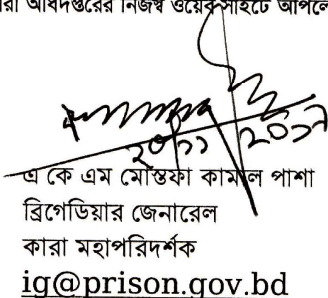 কারা অধিদপ্তরের নিজস্ব ওয়েবসাইটে আপলোড
এ কে এম মোস্তফা কামাল পাশা
ব্রিগেডিয়ার জেনারেল
কারা মহাপরিদর্শক
ig@prison.gov.bd